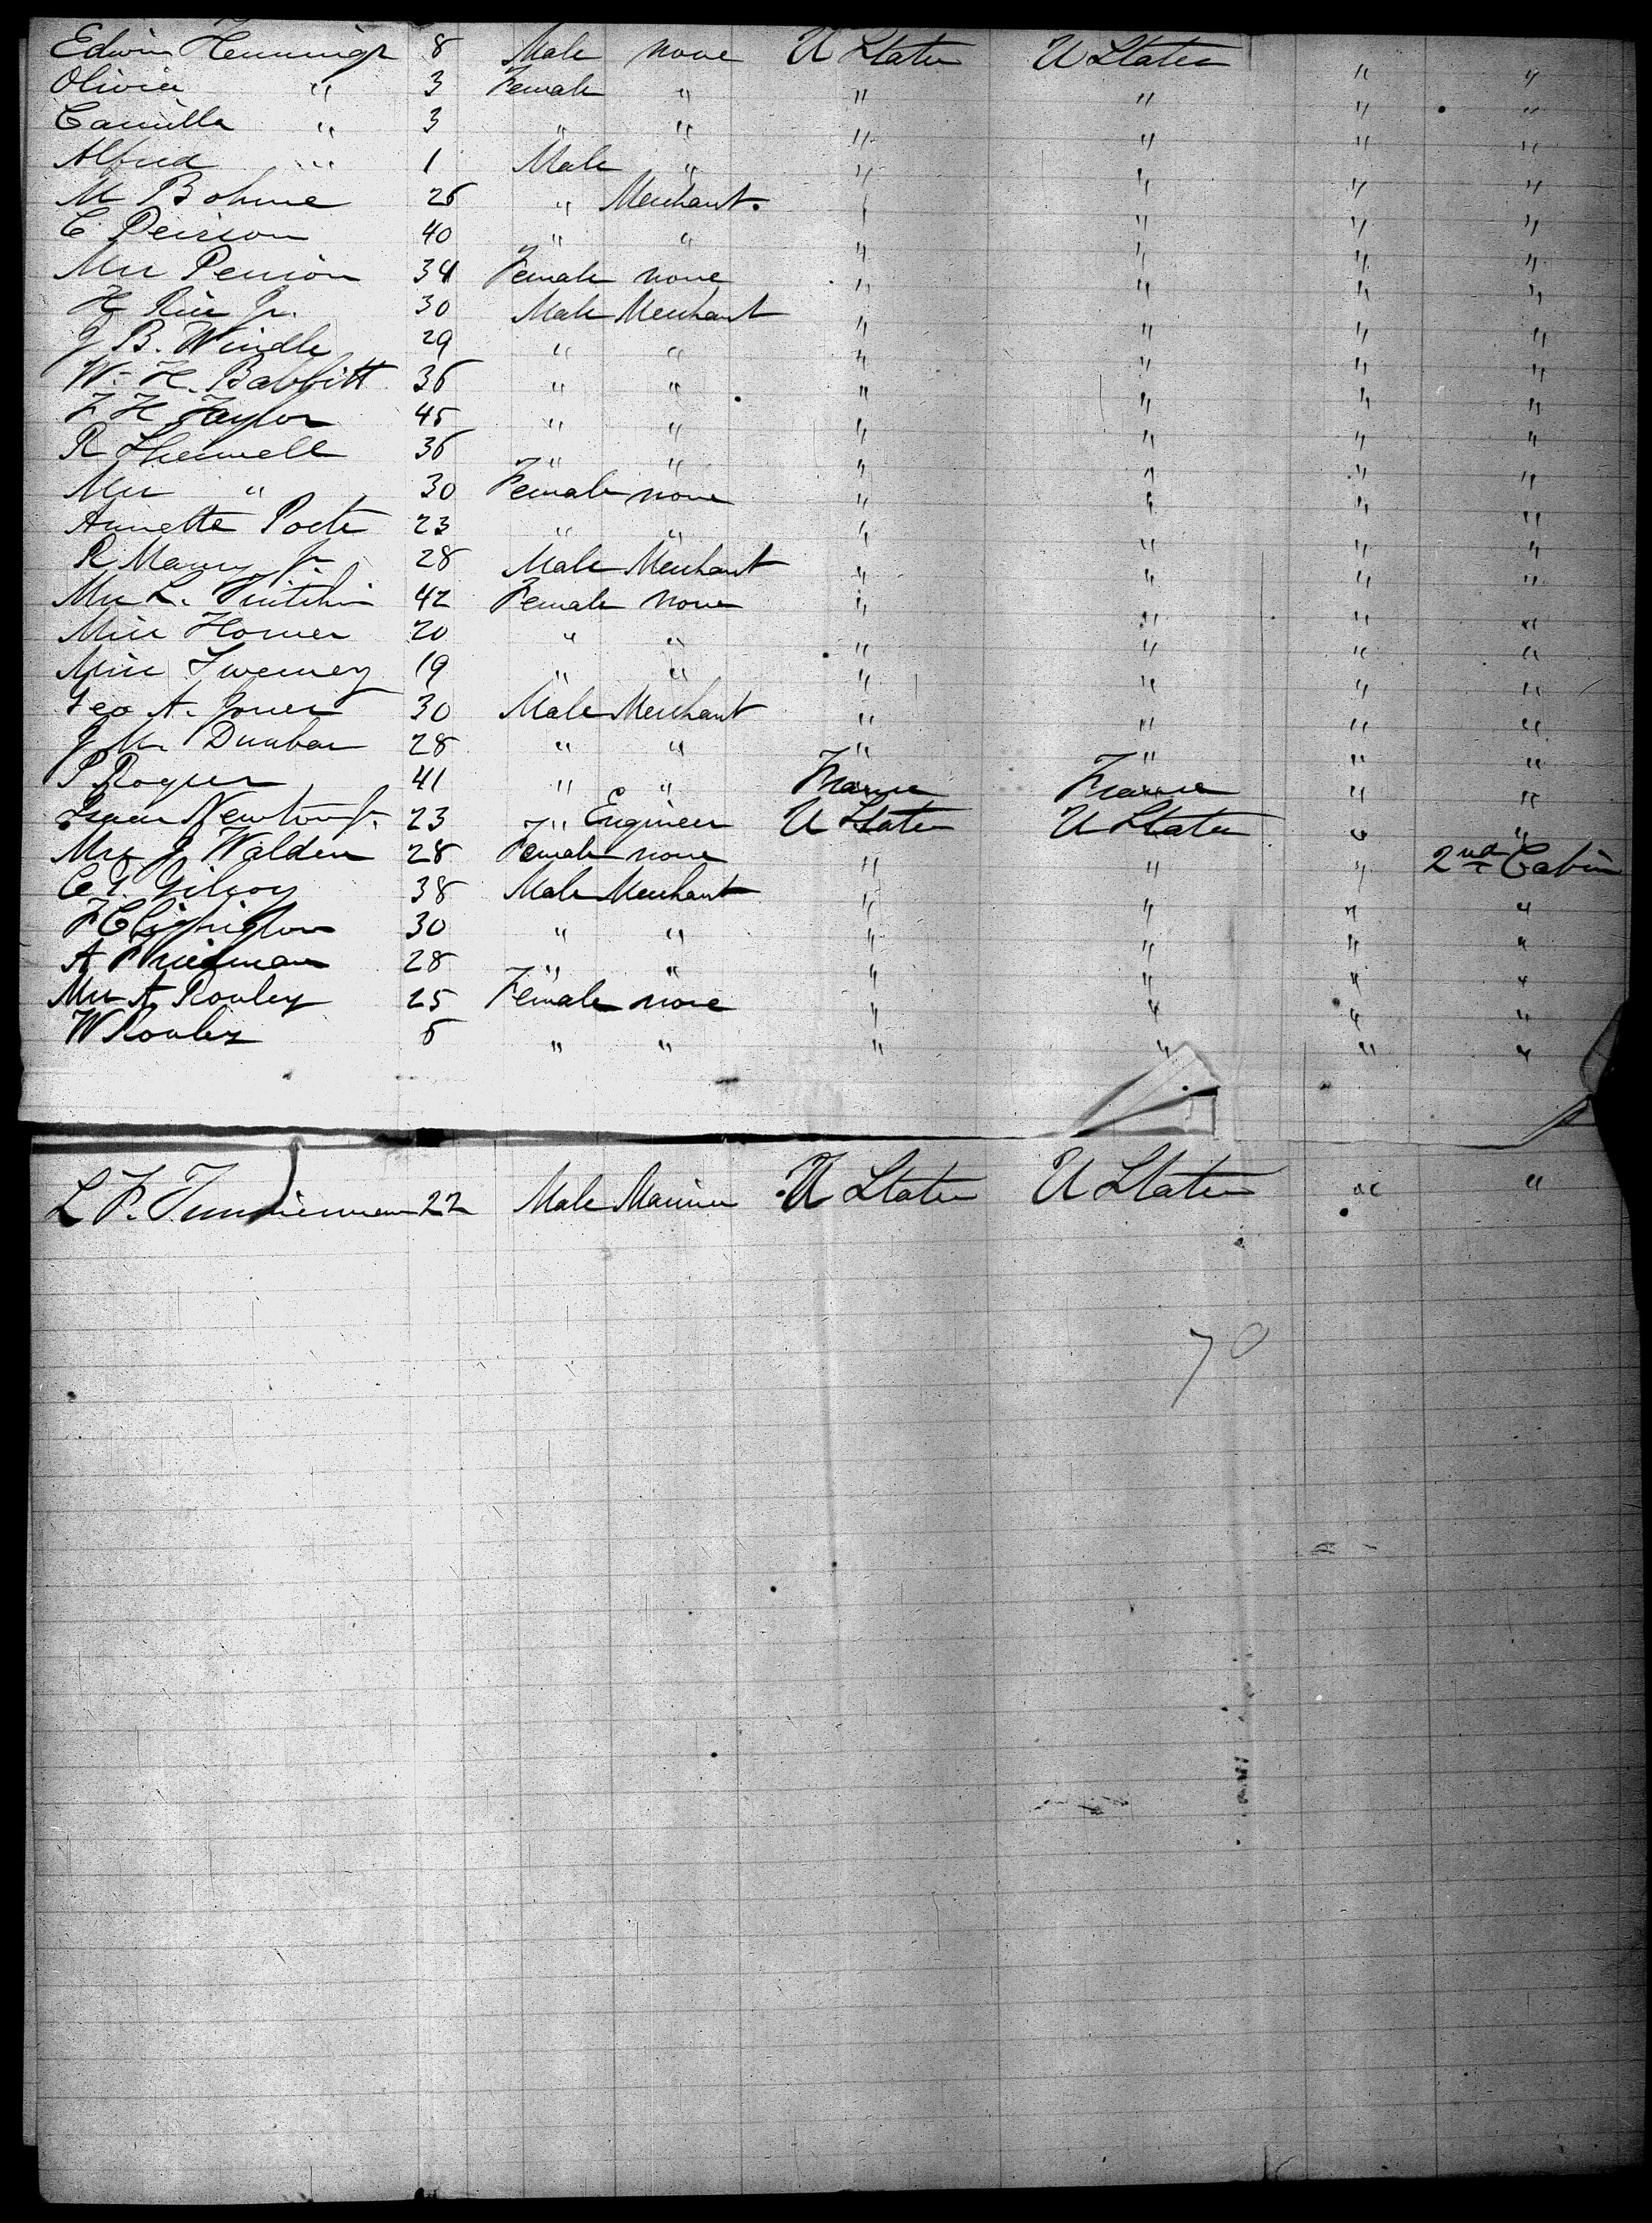 Edwin Hennings 8 Male none U States U States " "
Olivia " 3 Female " " " " "
Camilla " 3 " " " " " "
Alfred " 1 Male " " " " "
M Bohme 26 " Merchant. " " " "
C Peirson 40 " " " " " "
Mrs Peirson 34 Female none " " " "
H Rice Jr. 30 Male Merchant " " " "
J B. Windle 29 " " " " " "
W. H. Babbitt 36 " " " " " "
Z H Taylor 45 " " " " " "
R 36 " " " " " "
Mrs " 30 Female none " " " "
Annette 23 " " " " " "
R Maury Jr. 28 Male Merchant " " " "
Mrs L. 42 Female none " " " "
Miss Homer 20 " " " " " "
Miss 19 " " " " " "
Geo A. Jones 30 Male Merchant " " " "
J M. Dunbar 28 " " " " " "
P Roques 41 " " France France " "
Isaac Newton Jr. 23 " Engineer U States U States " "
Mrs J Walden 28 Female none " " " 2nd Cabin
Gilroy 38 Male Merchant " " " "
30 " " " " " "
A Friedman 28 " " " " " "
Mrs A Rowley 25 Female none " " " "
W Rowley 6 " " " " " "
L F. 22 Male Mariner U States U States " "
70